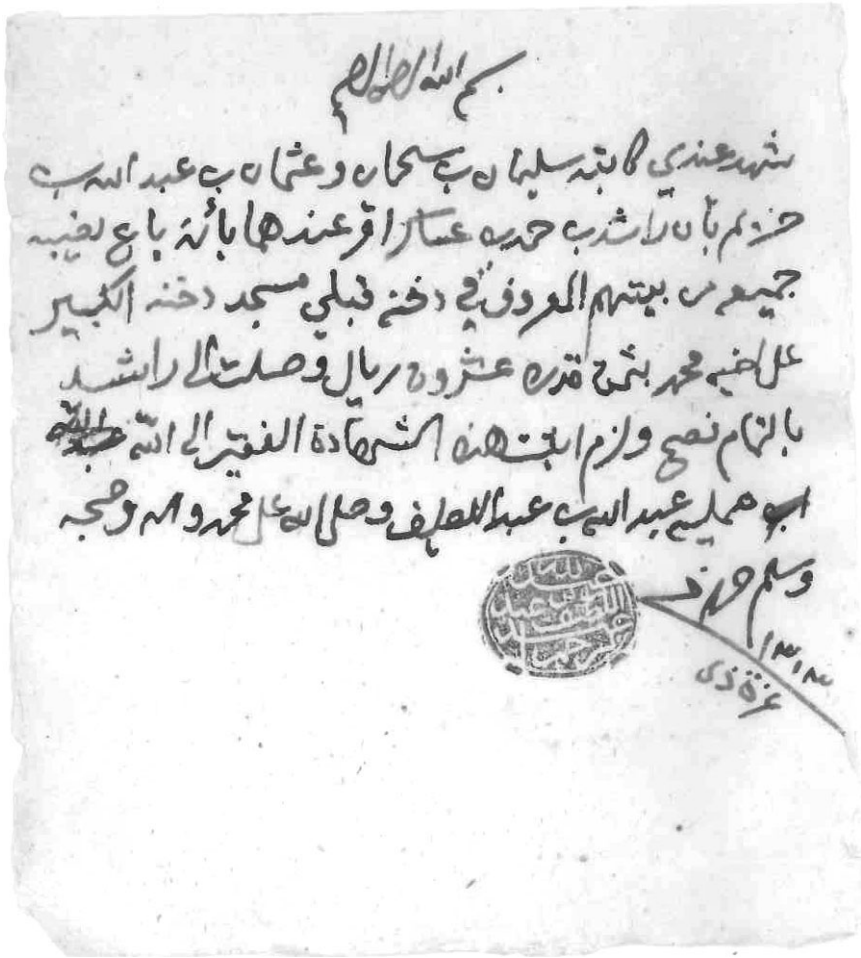 بسم الله الرحمن الرحيم
شهد عندي كاتبه سليمان بن سحمان وعثمان بن عبد الله بن
خزيم بأن راشد بن حمد بن عساكر اقر عندهما بأنه باع نصيبه
جميعه من بيتهم المعروف في دخنه قبلي مسجد دخنه الكبير
على اخيه محمد بثمن قدره عشرون ريال وصلت الى راشد
بالتمام فصح ولزم اثبت هذه الشهادة الفقير الى الله
عبد الله بن عبد اللطيف وصلى الله على محمد واله وصحبه
وسلم حرر في
غرة ذي